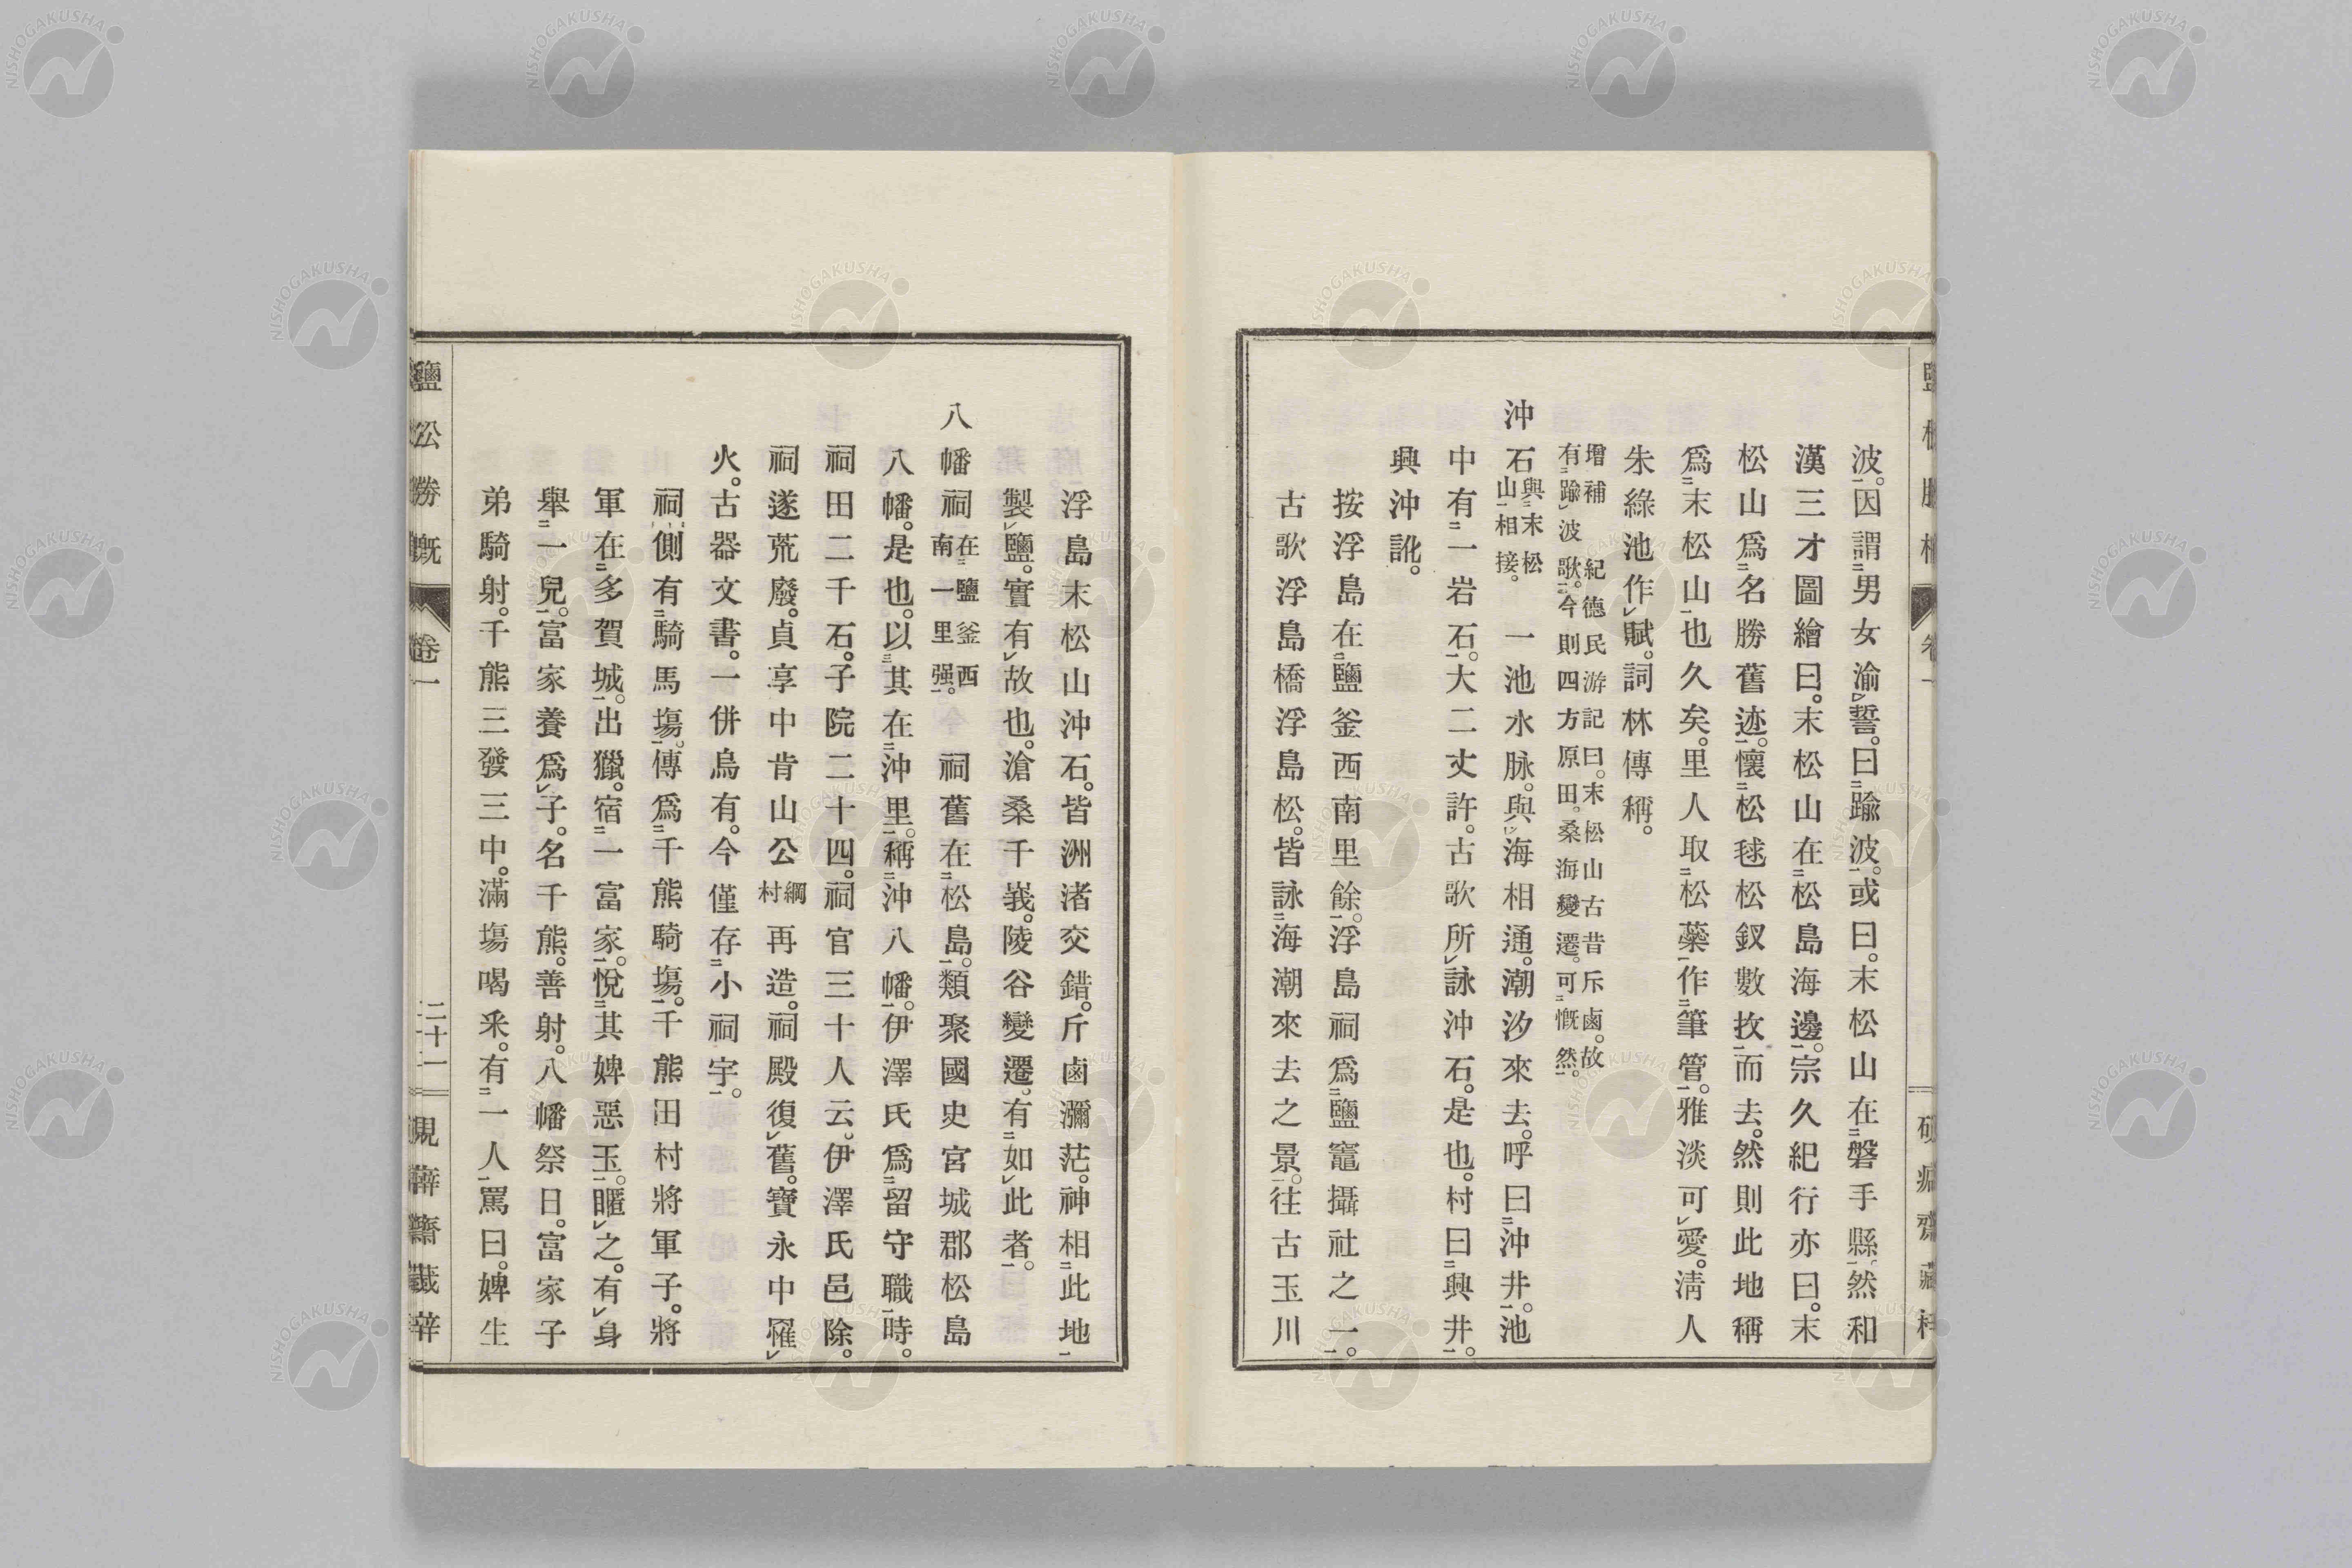 波。因謂男女渝誓。曰踰波。或曰。末松山在磐手縣、然和
漢三才圖繪曰。末松山在松島海邊。宗久紀行亦曰。末
松山爲名勝舊迹。懷松毬松釵數枚而去。然則此地稱
爲末松山也久矣。里人取松蘂作筆管。雅淡可愛。淸人
朱綠池作賦。詞林傳稱。
增補 紀德民游記曰。末松山古昔斥鹵。故
有踰波歌。今則四方原田。桑海變遷。可慨然。
沖石與末松山相接。 一池水脉。與海相通。潮汐來去。呼曰沖井。池
中有一岩石。大二丈許。古歌所詠沖石。是也。村曰興井。
興沖訛。
按浮島在鹽釜西南里餘。浮島祠爲鹽竈攝社之一。
古歌浮島橋浮島松。皆詠海潮來去之景。往古玉川
浮島末松山沖石。皆洲渚交錯。斤鹵瀰茫。神相此地
製鹽。實有故也。滄桑千羲。陵谷變遷。有如此者。
八幡祠在鹽釜西南一里强。 祠舊在松島。類聚國史宮城郡松島
八幡。是也。以其在沖里。稱沖八幡。伊澤氏爲留守職時。
祠田二千石。子院二十四。祠官三十人云。伊澤氏邑除。
祠遂荒廢。貞享中肯山公綱村再造。祠殿復舊。寶永中罹
火。古器文書。一併烏有。今僅存小祠宇。
祠側有騎馬塲。傳爲千熊騎塲。千熊田村將軍子。將
軍在多賀城。出獵。宿一富家。悅其婢惡玉。暱之。有身
舉一兒。富家養爲子。名千熊。善射。八幡祭日。富家子
弟騎射。千熊三發三中。滿塲喝釆。有一人罵曰。婢生
鹽松勝概
卷一
二十一